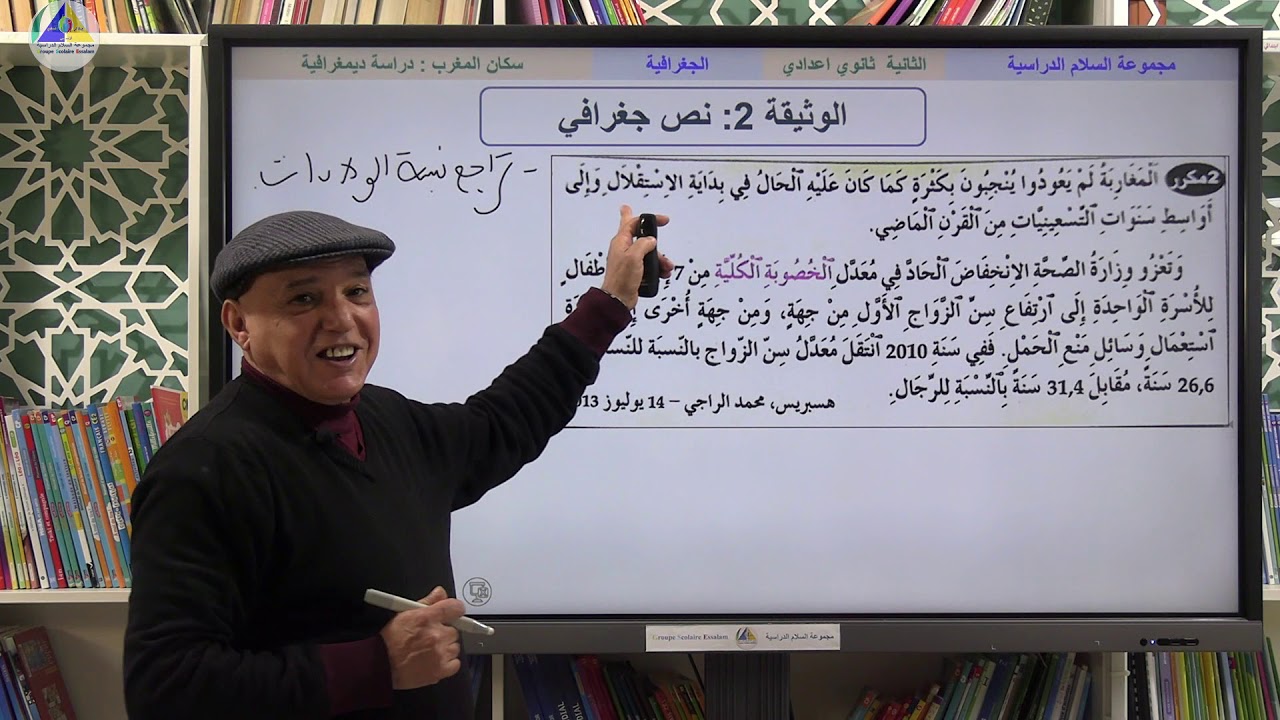 مجموعة السلام الدراسية
Groupe Scolaire Essalam
مجموعة السلام الدراسية
الثانية ثانوي اعدادي
الجغرافية
سكان المغرب : دراسة ديمغرافية
الوثيقة 2: نص جغرافي
- تراجع نسبة الولادات
2مكرر اَلْمَغَارِبَةُ لَمْ يَعُودُوا يُنْجِبُونَ بِكَثْرَةٍ كَمَا كَانَ عَلَيْهِ اَلْحَالُ فِي بِدَايَةِ الِاسْتِقْلَالِ وَإِلَى
أَوَاسِطِ سَنَوَاتِ التِّسْعِينِيَّاتِ مِنَ الْقَرْنِ الْمَاضِي.
وَتَعْزُو وِزَارَةُ الصِّحَّةِ الِانْخِفَاضَ الْحَادَّ فِي مُعَدَّلِ الْخُصُوبَةِ الْكُلِّيَّةِ مِنْ 7
لِلْأُسْرَةِ الْوَاحِدَةِ إِلَى ارْتِفَاعِ سِنِّ الزَّوَاجِ الْأَوَّلِ مِنْ جِهَةٍ، وَمِنْ جِهَةٍ أُخْرَى
اسْتِعْمَالِ وَسَائِلِ مَنْعِ الْحَمْلِ. فَفِي سَنَةِ 2010 انْتَقَلَ مُعَدَّلُ سِنِّ الزّواجِ بالنّسبَة
26,6 سَنَةً، مُقَابِلَ 31,4 سَنَةً بِالنِّسْبَةِ لِلرِّجَالِ.
هسبريس، محمد الراجي – 14 يوليوز
Groupe Scolaire Essalam
مجموعة السلام الدراسية